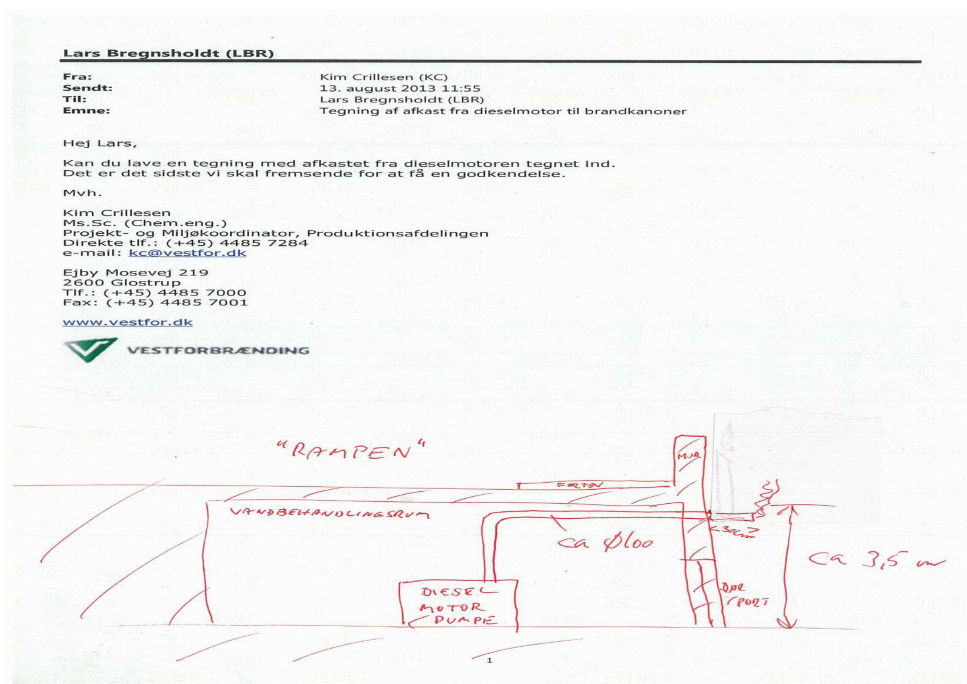 Lars Bregnsholdt (LBR)
Fra: Kim Crillesen (KC)
Sendt: 13. august 2013 11:55
Til: Lars Bregnsholdt (LBR)
Emne: Tegning af afkast fra dieselmotor til brandkanoner
Hej Lars,
Kan du lave en tegning med afkastet fra dieselmotoren tegnet ind.
Det er det sidste vi skal fremsende for at få en godkendelse.
Mvh.
Kim Crillesen
Ms.Sc. (Chem.eng.)
Projekt- og Miljøkoordinator, Produktionsafdelingen
Direkte tlf.: (+45) 4485 7284
e-mail: kc@vestfor.dk
Ejby Mosevej 219
2600 Glostrup
Tlf.: (+45) 4485 7000
Fax: (+45) 4485 7001
www.vestfor.dk
VESTFORBRÆNDING
"RAMPEN"
MUR
FORTOV
VANDBEHANDLINGSRUM
30cm
ca Ø100
ca 3,5 m
DIESEL
MOTOR
PUMPE
DØR
/PORT
1